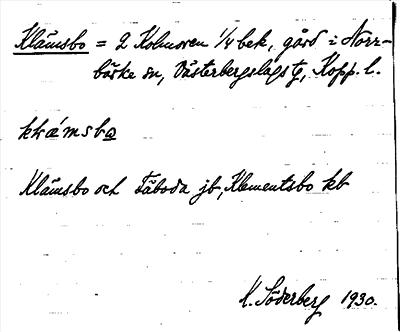 Klämsbo = 2 Kolmoren 1/4 bek, gård i Norr-
bärke sn, Västerbergslags tg, Kopp. l.
klcámsbo
Klämsbo och Täboda jb, Klementsbo kb
K. Söderberg 1930.